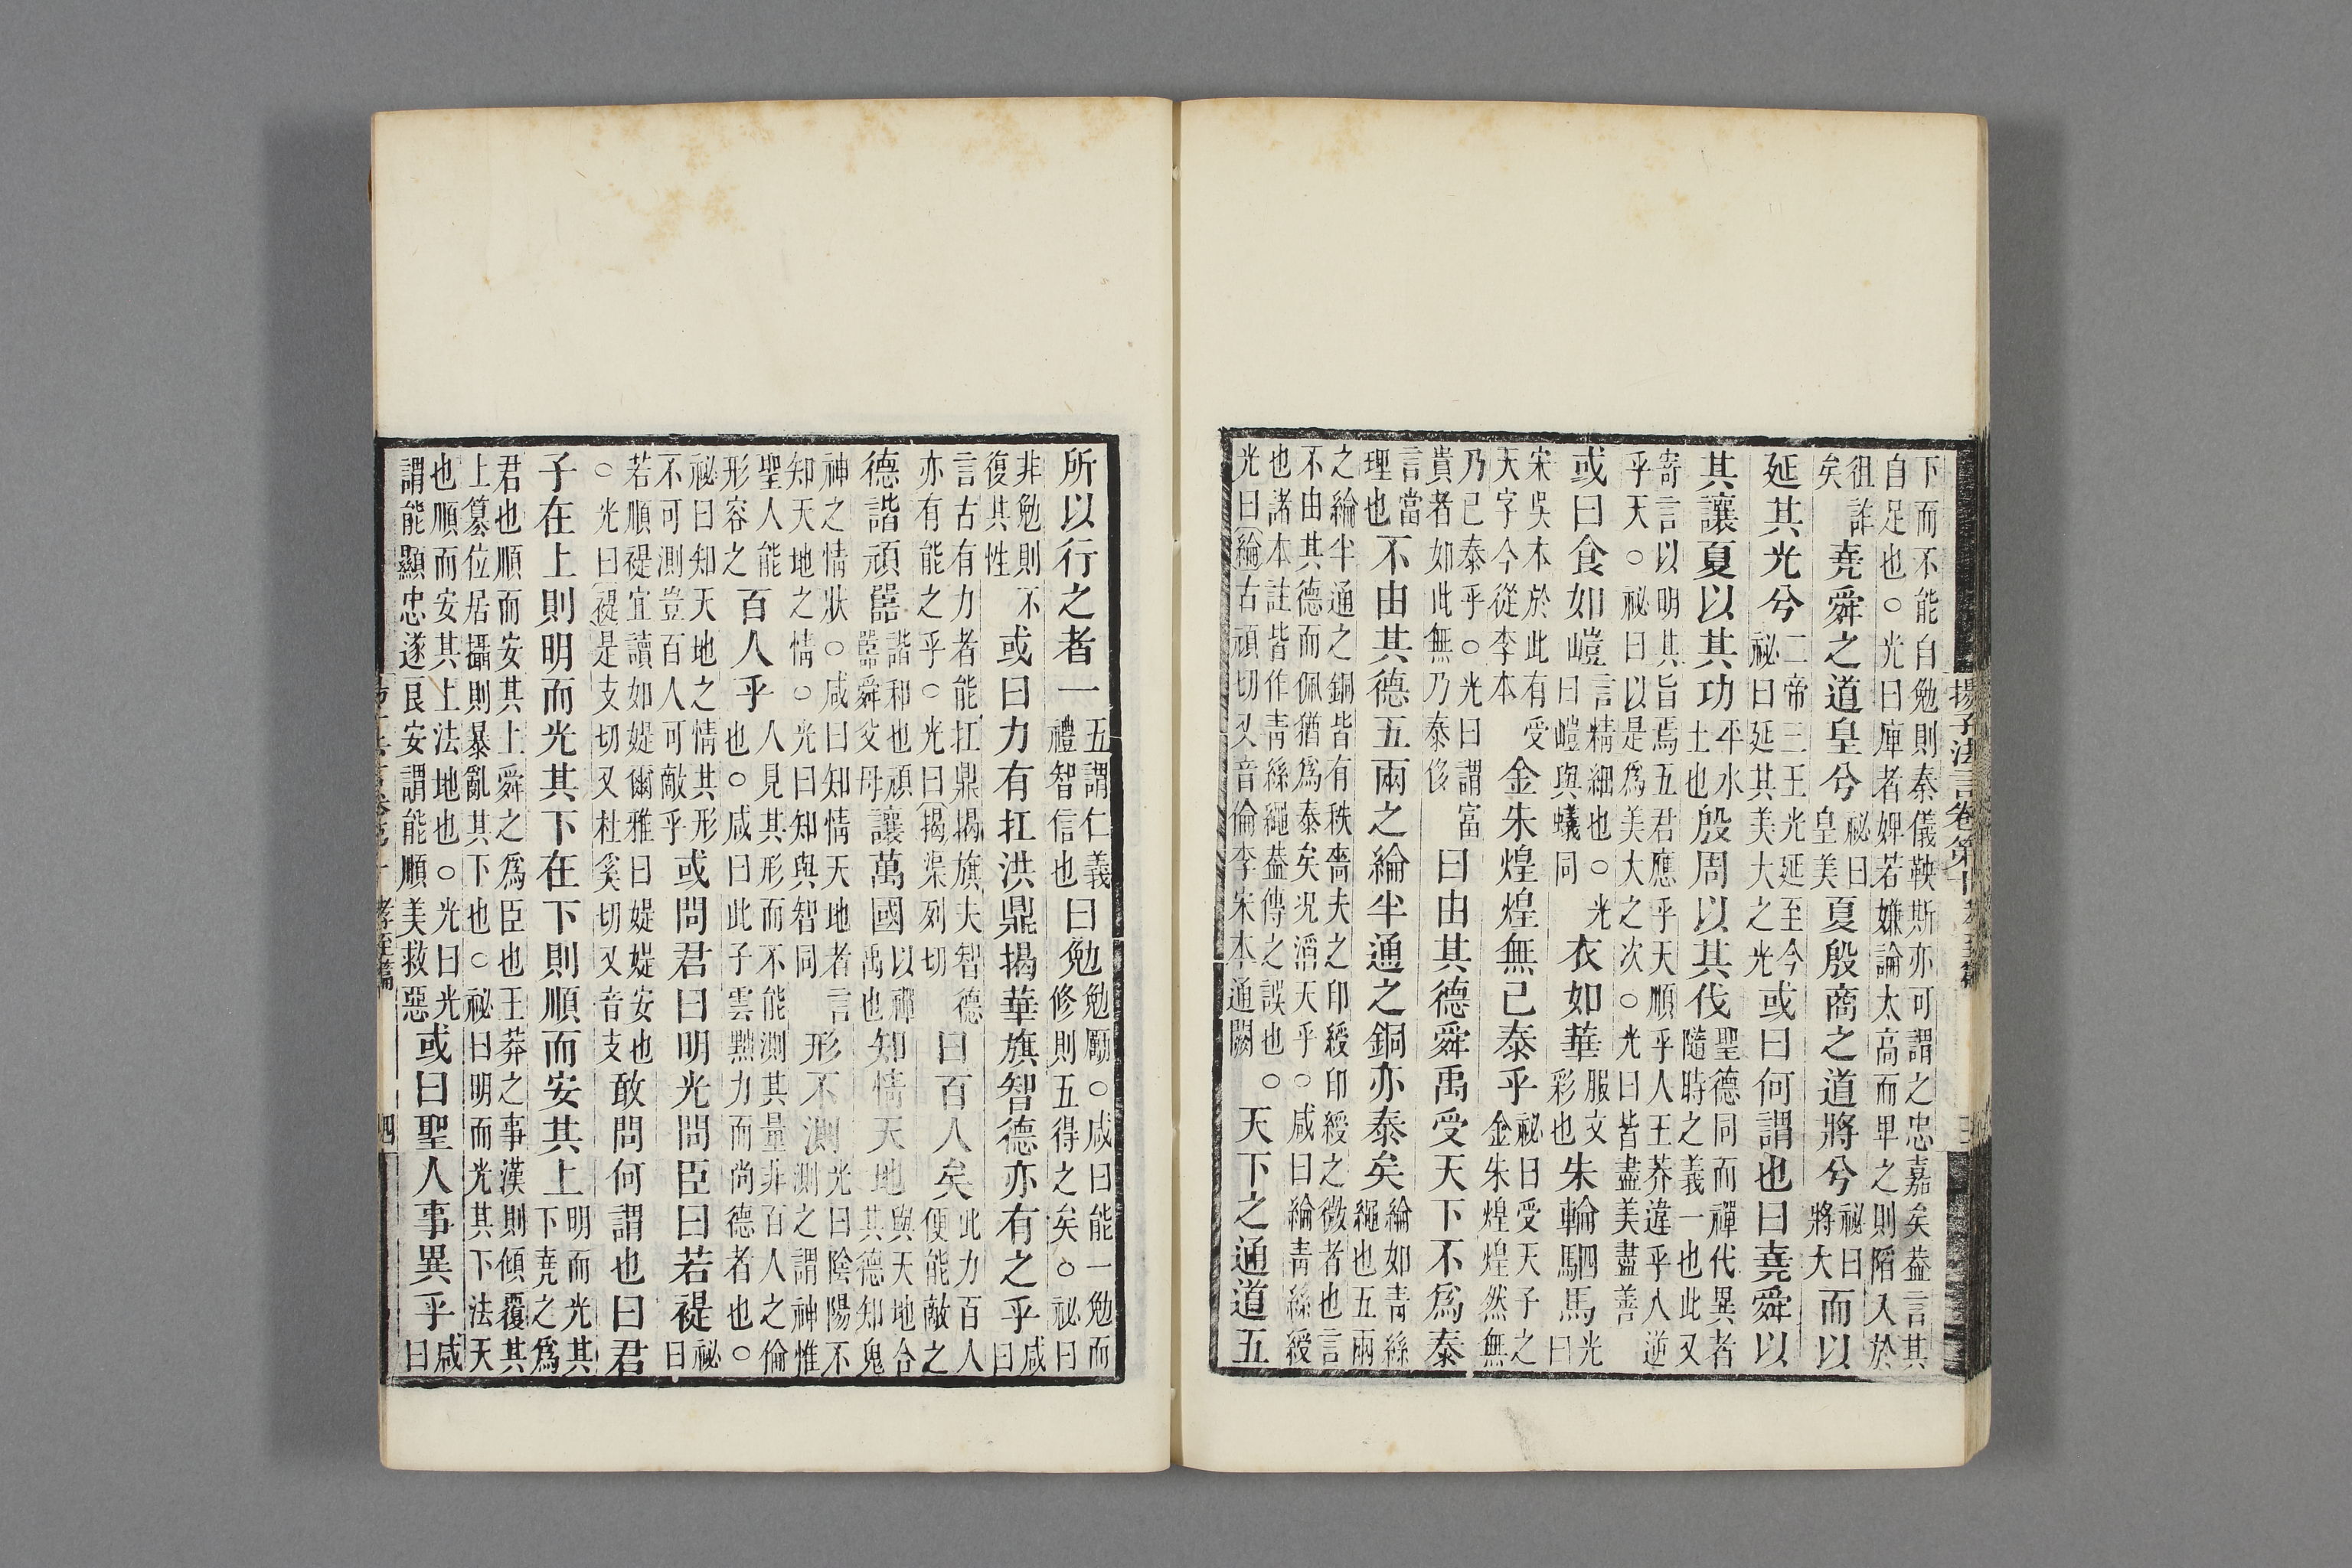 揚子法言卷第十
三
下而不能自勉則秦儀鞅斯亦可謂之忠嘉矣葢言其
自足也○光曰庳者婢若嫌論太高而卑之則䧟入於
徂詐矣堯舜之道皇兮秘曰皇美夏殷商之道將兮秘曰將大而以
延其光兮二帝三王光延至今秘曰延其美大之光或曰何謂也曰堯舜以
其讓夏以其功平水土也殷周以其伐聖德同而禪代異者隨時之義一也此又
寄言以明其旨焉五君應乎天順乎人王莽違乎人逆
乎天○秘曰以是爲美大之次○光曰皆盡美盡善
或曰食如螘言精細也○光曰螘與蟻同衣如華服文彩也朱輪駟馬光曰
宋吳本於此有受天字今從李本金朱煌煌無已泰乎秘曰受天子之金朱煌煌然無
乃已泰乎○光曰謂富貴者如此無乃泰侈曰由其德舜禹受天下不爲泰
言當理也不由其德五兩之綸半通之銅亦泰矣綸如青絲繩也五兩
之綸半通之銅皆有秩嗇夫之印綬印綬之微者也言
不由其德而佩猶爲泰矣况滔天乎○咸曰綸青絲綬
也諸本註皆作青絲繩葢傳之誤也○光曰綸古頑切又音倫李宋本通闕天下之通道五
所以行之者一五謂仁義禮智信也曰勉勉勵○咸曰能一勉而修則五得之矣○秘曰
非勉則不復其性或曰力有扛洪鼎揭華旗智德亦有之乎咸曰
言古有力者能扛鼎揭旗夫智德亦有能之乎○光曰揭渠列切曰百人矣此力百人便能敵之
德諧頑嚚諧和也頑嚚舜父母讓萬國以禪禹也知情天地與天地合其德知鬼
神之情狀○咸曰知情天地者言知天地之情○光曰知與智同形不測光曰陰陽不測之謂神惟
聖人能形容之百人乎人見其形而不能測其量非百人之倫也○咸曰此子雲黜力而尚德者也○
秘曰知天地之情其形不可測豈百人可敵乎或問君曰明光問臣曰若禔秘曰
若順禔宜讀如媞爾雅曰媞媞安也○光曰禔是支切又杜奚切又音支敢問何謂也曰君
子在上則明而光其下在下則順而安其上明而光其下堯之爲
君也順而安其上舜之爲臣也王莽之事漢則傾覆其
上簒位居攝則暴亂其下也○秘曰明而光其下法天
也順而安其上法地也○光曰光謂能顯忠遂良安謂能順美救惡或曰聖人事異乎咸曰
孝至篇
四